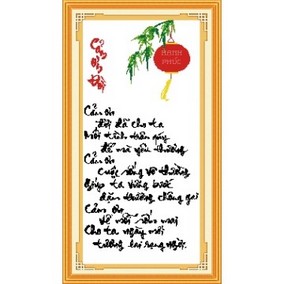 Cảm
Ơn
Đời
HẠNH
PHÚC
Cảm ơn
đời đã cho ta
Mối tình trân quý
để mà yêu thương
Cảm ơn
cuộc sống vô thường
Giúp ta vững bước
dặm trường chông gai
Cảm ơn
về mỗi sớm mai
Cho ta ngày mới
tương lai rạng ngời.